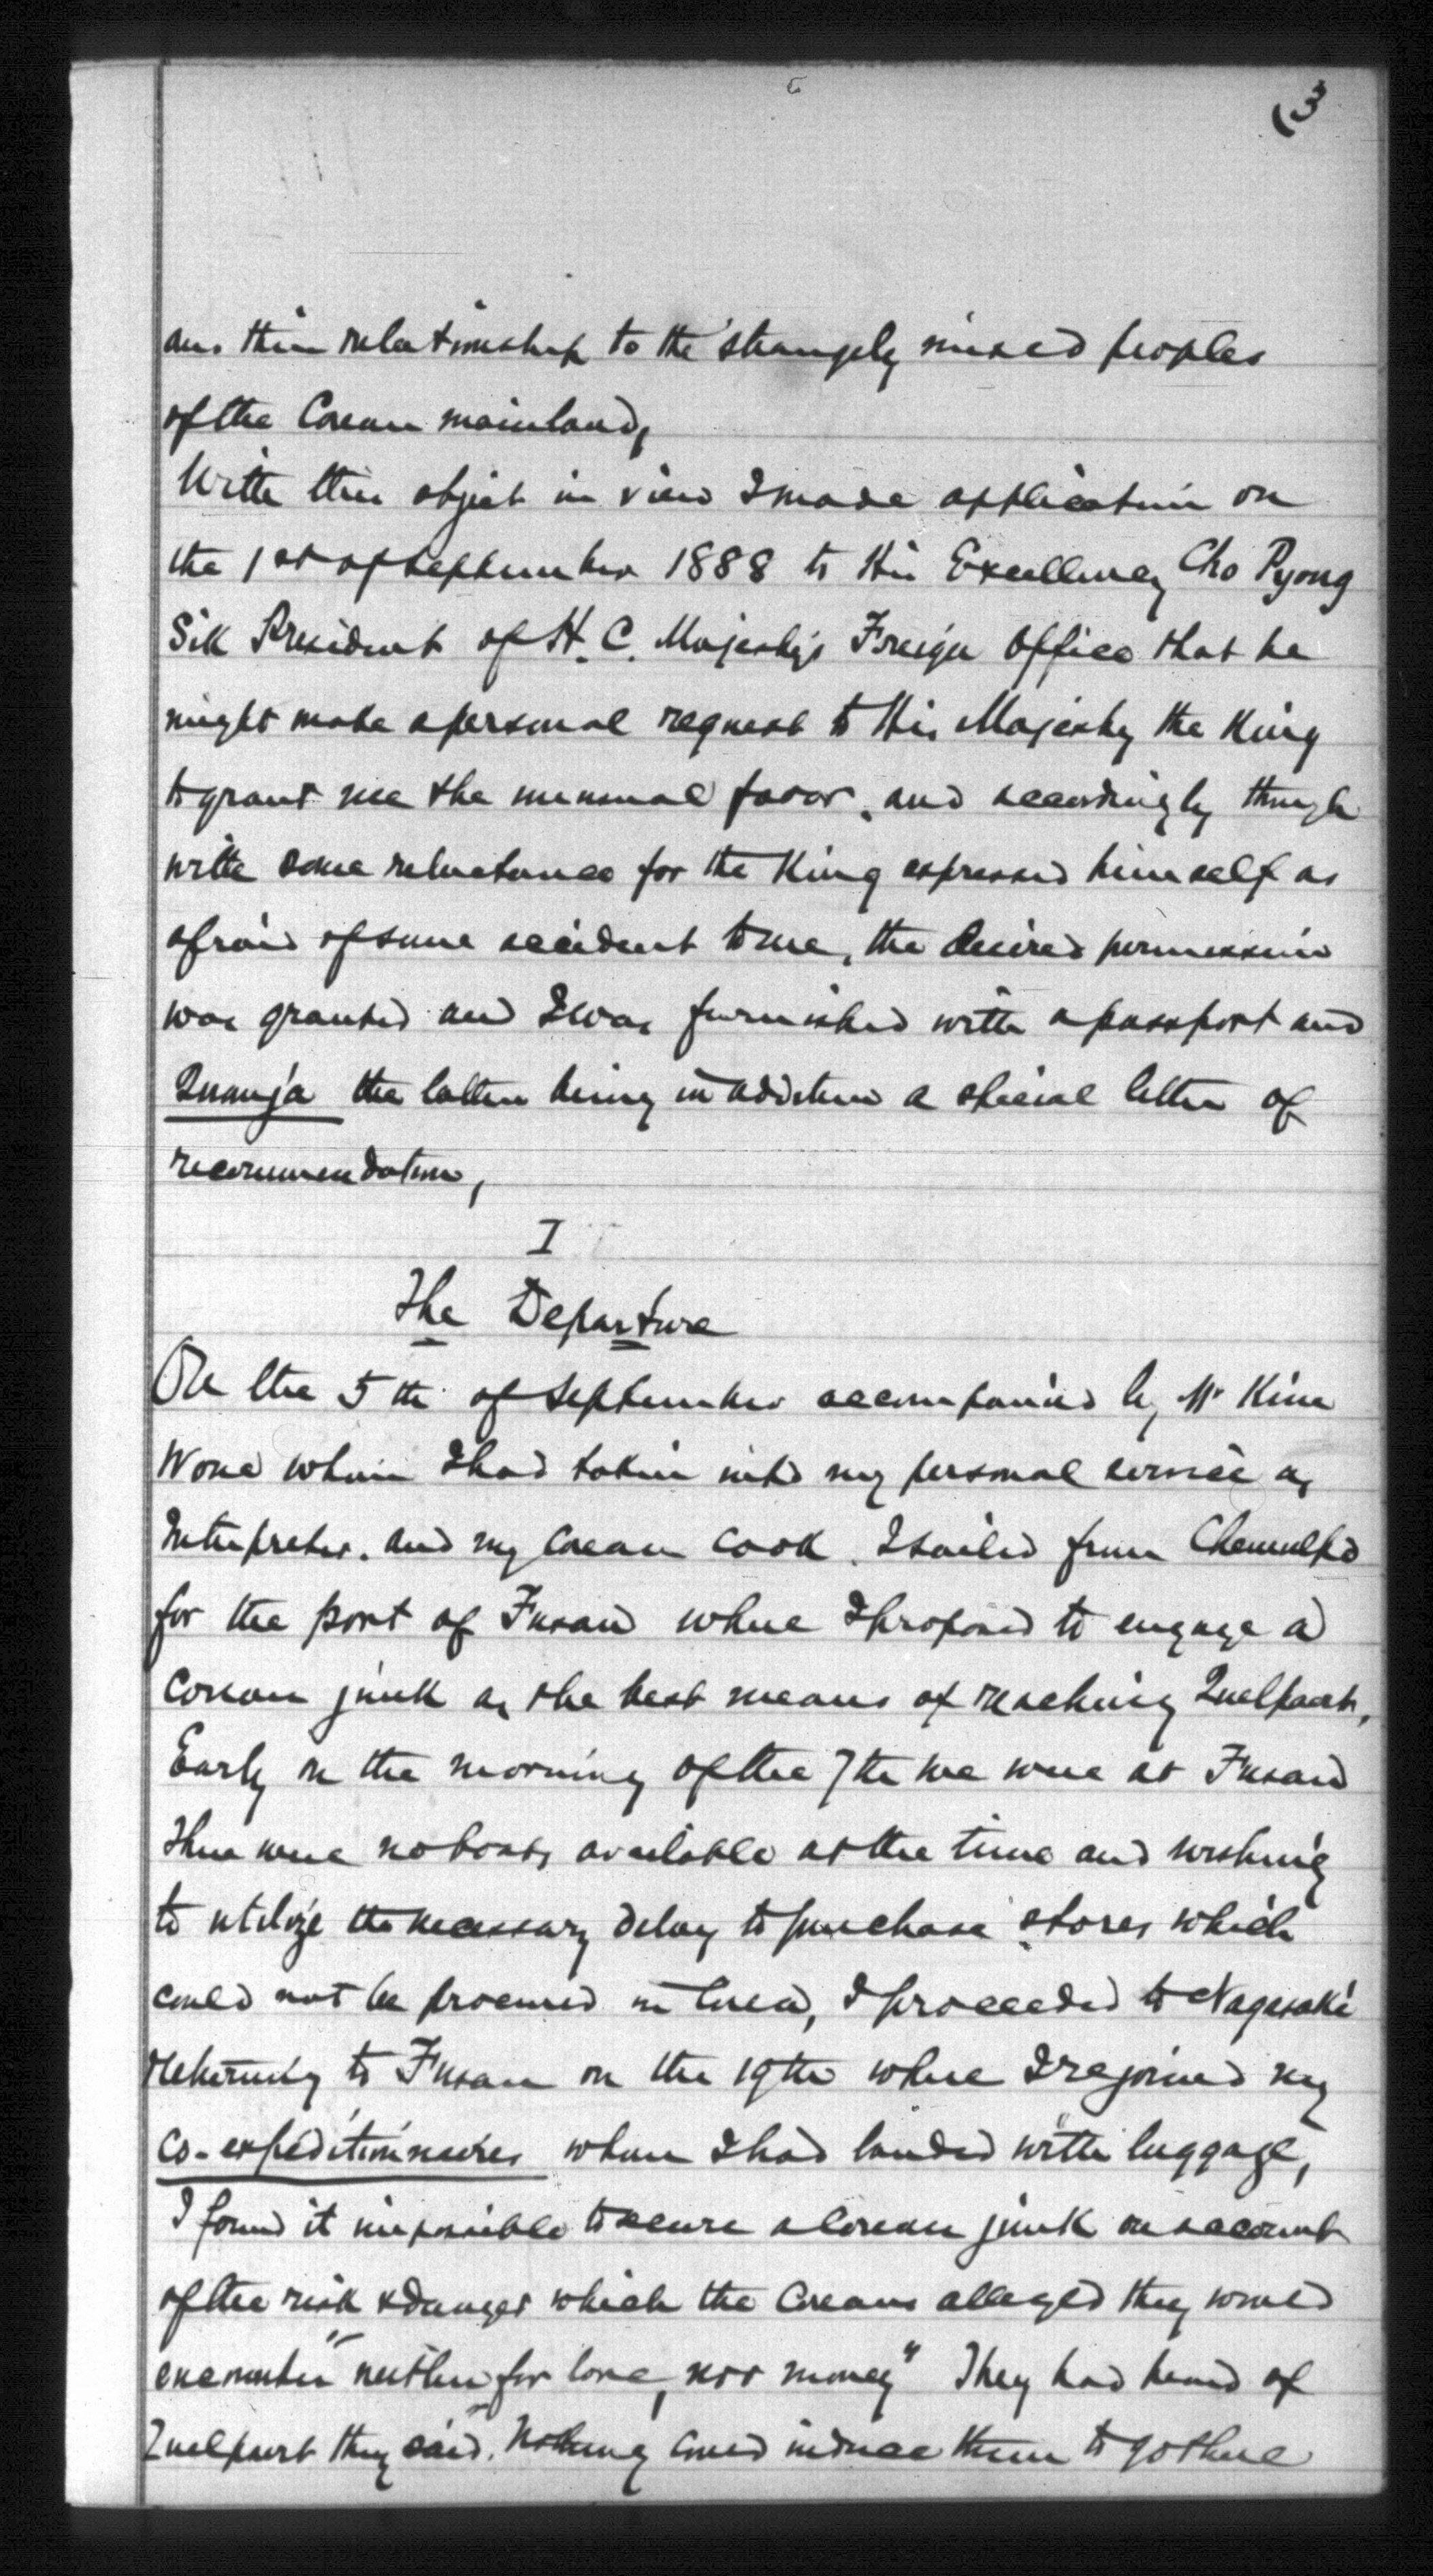 (3
and their relationship to the strangely mixed peoples
of the Corean mainland,
With this object in view I made application on
the 1st of September 1888 to His Excellency Cho Pyong
Sik President of H. C. Majesty's Foreign Office that he
might make a personal request to His Majesty the King
to grant me the unusual favor, and accordingly though
with some reluctance for the King expressed himself as
afraid of some accident to me, the desired permission
was granted and I was furnished with a passport and
Quanja the latter being in addition a special letter of
recommendation,
I
The Departure
On the 5th of September accompanied by Mr Kim
Wone whom I had taken into my personal service as
Interpreter. and my Corean cook. I sailed from Chemulpo
for the port of Fusan where I proposed to engage a
Corean junk as the best means of reaching Quelpaert,
Early on the morning of the 7th we were at Fusan
There were no boats available at the time and wishing
to utilize the necessary delay to purchase stores which
could not be procured in Corea, I proceeded to Nagasaki
returning to Fusan on the 19th where I rejoined my
co-expeditionnaires whom I had landed with luggage,
I found it impossible to secure a Corean junk on account
of the risk & danger which the Coreans alleged they would
encounter "neither for love, nor money" They had heard of
Quelpaert they said. Nothing could induce them to go there